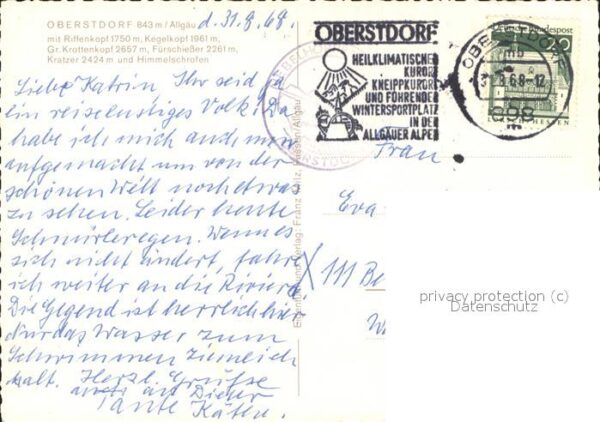 OBERSTDORF 843 m / Allgäu
mit Riffenkopf 1750 m, Kegelkopf 1961 m,
Gr. Krottenkopf 2657 m, Fürschießer 2261 m,
Kratzer 2424 m und Himmelschrofen
d. 31.8.68.
Liebe Katrin Ihr seid ja
ein reiselustiges Volk! Da
habe ich mich auch mal
aufgemacht um von der
schönen Welt noch etwas
zu sehen. Leider heute
Schnürleregen. Wenn es
sich nicht ändert, fahre
ich weiter an die Riviera
Die Gegend ist herrlich hier
Nur das Wasser zum
Schwimmen ziemlich
kalt. Herzl. Grüße
auch an Dieter
Tante Käthe.
OBERSTDORF
HEILKLIMATISCHER
KURORT
KNEIPPKURORT
UND FÜHRENDER
WINTERSPORTPLATZ
IN DEN
ALLGÄUER ALPEN
Verlag: Franz Milz, Füssen/Allgäu
Frau
Eva
111 Be
privacy protection (c)
Datenschutz